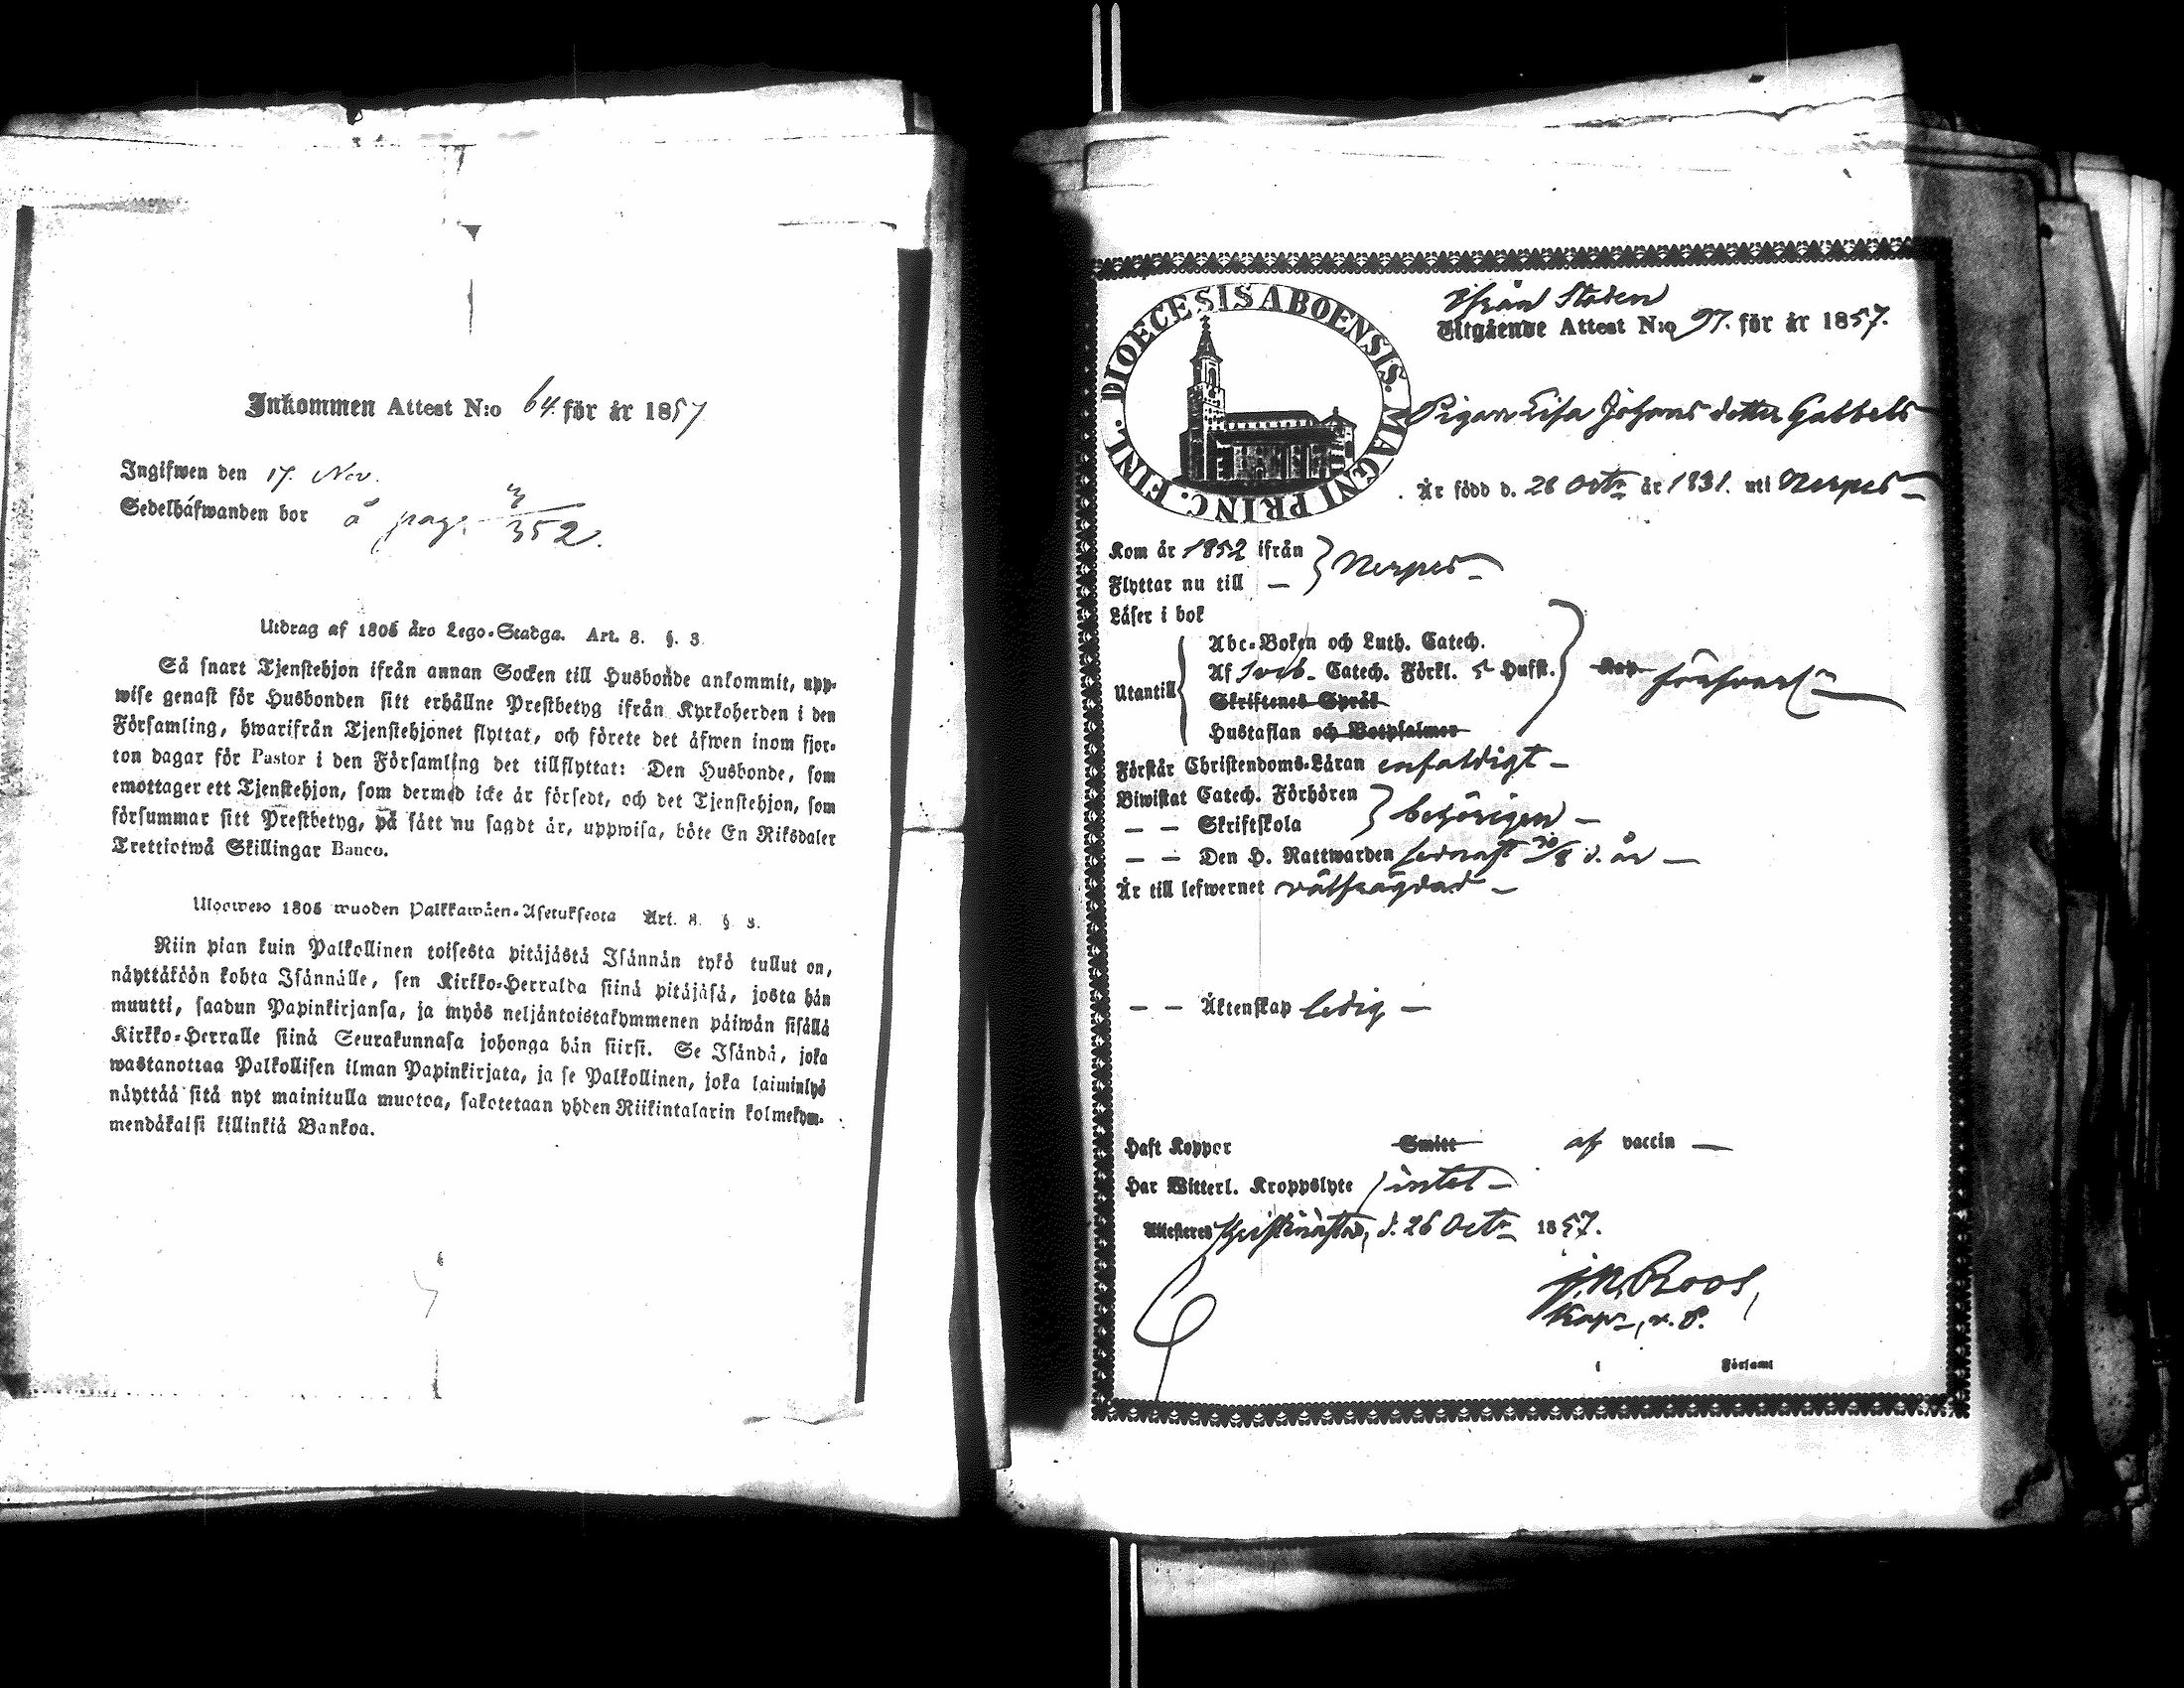 Inkommen Attest N:o 64. för år 1857
Ingifwen den 17. Nov.
Sedelhäfwanden bor å pag. 3/352.
Utdrag af 1805 års Lego-Stadga. Art. 8. §. 3.
Så snart Tjenstehjon ifrån annan Socken till Husbonde ankommit, upp-
wise genast för Husbonden sitt erhållne Prestbetyg ifrån Kyrkoherden i den
Församling, hwarifrån Tjenstehjonet flyttat, och förete det äfwen inom fjor-
ton dagar för Pastor i den Församling det tillflyttat: Den Husbonde, som
emottager ett Tjenstehjon, som dermed icke är försedt, och det Tjenstehjon, som
försummar sitt Prestbetyg, på sätt nu sagdt är, uppwisa, böte En Riksdaler
Trettiotwå Skillingar Banco.
Ulosweto 1805 wuoden Palkkawäen-Asetuksesta Art. 8. § 3.
Niin pian kuin Palkollinen toisesta pitäjästä Isännän tykö tullut on,
näyttäköön kohta Isännälle, sen Kirkko-Herralda siinä pitäjäsä, josta hän
muutti, saadun Papinkirjansa, ja myös neljäntoistakymmenen päiwän sisällä
Kirkko-Herralle siinä Seurakunnasa johonga hän siirsi. Se Isändä, joka
wastanottaa Palkollisen ilman Papinkirjata, ja se Palkollinen, joka laiminlyö
näyttää sitä nyt mainitulla muotoa, sakotetaan yhden Riikintalarin kolmekym-
mendäkaisi killinkiä Bankoa.
DIOECESIS ABOENSIS. MAGNI PRINC. FINL.
Ifrån Staden
Utgående Attest N:o 97. för år 1857.
Pigan Lisa Johans dotter Gabbels
Är född d. 28 Octr år 1831. uti Nerpes
Kom år 1852 ifrån } Nerpes
Flyttar nu till —
Läser i bok
Abc-Boken och Luth. Catech.
Utantill Af Sveb. Catech. Förkl. 5 Hufst. försvarl.
Skriftenes Språk
Hustaflan och Botpsalmer
Förstår Christendoms-Läran enfaldigt —
Biwistat Catech. Förhören } behörigen —
— — Skriftskola
— — Den H. Nattwarden sednast 30/8 d. år —
Är till lefwernet välfrägdad —
— — Äktenskap ledig —
Haft Koppor Smitt af vaccin —
Har Witterl. Kroppslyte intet —
Attesteres Kristinestad, d. 26 Octr 1857.
J. N. Roos,
Kapn, v. P.
i Församl